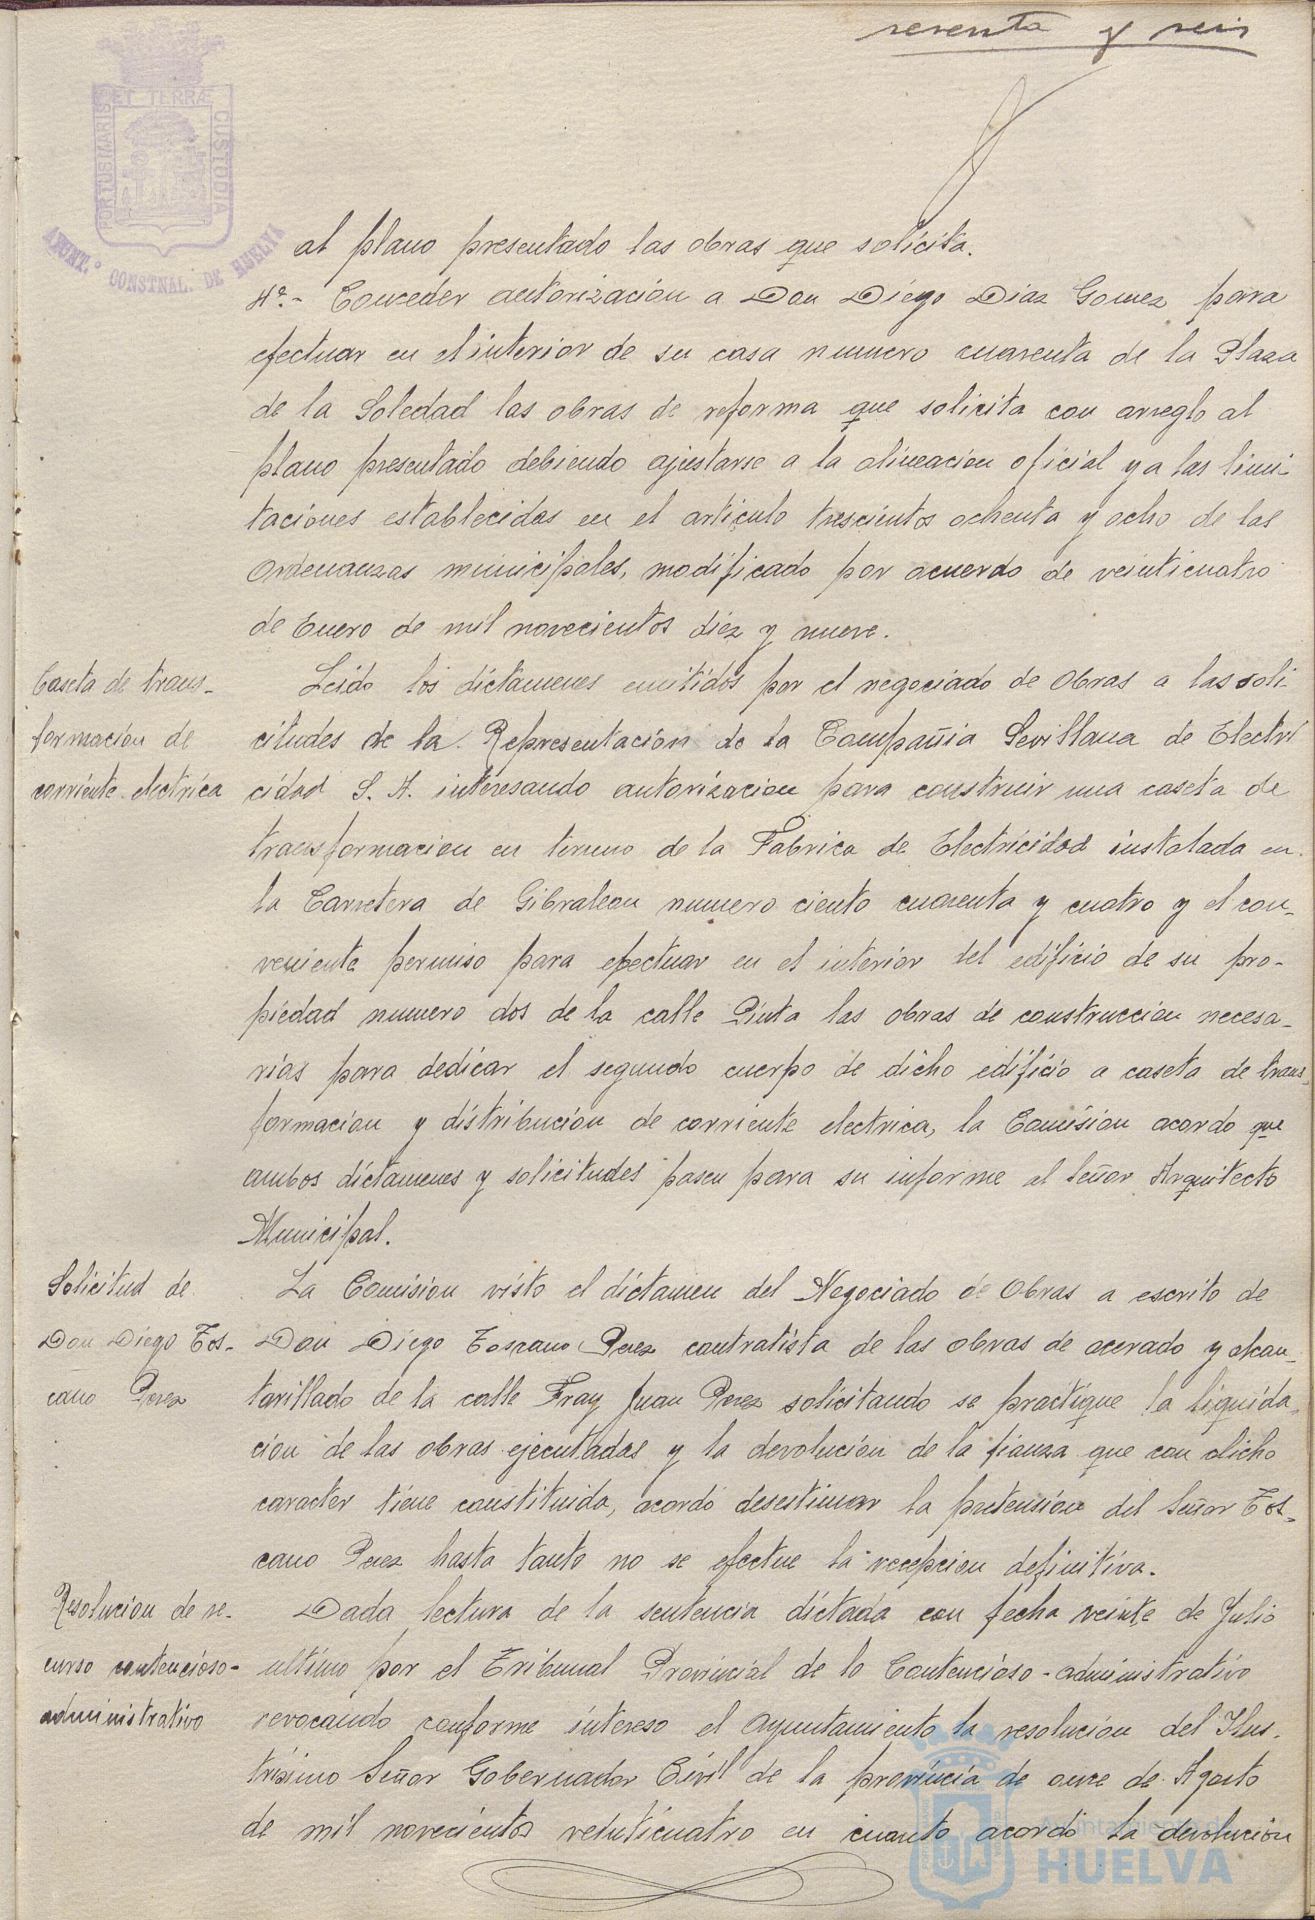 sesenta y seis
PORTUS MARIS ET TERRÆ CUSTODIA
AYUNT.º CONSTNAL. DE HUELVA
al plano presentado las obras que solicita.
4º.- Conceder autorizacion a Don Diego Diaz Gomez para
efectuar en el interior de su casa numero cuarenta de la Plaza
de la Soledad las obras de reforma que solicita con arreglo al
plano presentado debiendo ajustarse a la alineacion oficial y a las limi-
taciones establecidas en el articulo trescientos ochenta y ocho de las
Ordenanzas municipales, modificado por acuerdo de veinticuatro
de Enero de mil novecientos diez y nueve.
Caseta de trans-
formación de
corriente electrica
Leido los dictamenes emitidos por el negociado de Obras a las soli-
citudes de la Representación de la Compañia Sevillana de Electri
cidad S. A. interesando autorizacion para construir una caseta de
transformacion en terreno de la Fabrica de Electricidad instalada en
la Carretera de Gibraleon numero ciento cuarenta y cuatro y el con-
veniente permiso para efectuar en el interior del edificio de su pro-
piedad numero dos de la calle Pinta las obras de construccion necesa-
rias para dedicar el segundo cuerpo de dicho edificio a caseta de trans-
formacion y distribucion de corriente electrica, la Comision acordo que
ambos dictamenes y solicitudes pasen para su informe al Señor Arquitecto
Municipal.
Solicitud de
Don Diego Tos-
cano Perez
La Comision visto el dictamen del Negociado de Obras a escrito de
Don Diego Toscano Perez contratista de las obras de acerado y alcan-
tarillado de la calle Fray Juan Perez solicitando se practique la liquida-
cion de las obras ejecutadas y la devolucion de la fianza que con dicho
caracter tiene constituida, acordó desestimar la pretension del Señor Tos-
cano Perez hasta tanto no se efectue la recepcion definitiva.
Resolucion de re-
curso contencioso-
administrativo
Dada lectura de la sentencia dictada con fecha veinte de Julio
ultimo por el Tribunal Provincial de lo Contencioso-administrativo
revocando conforme intereso el Ayuntamiento la resolucion del Ilus-
trisimo Señor Gobernador Civil de la provincia de once de Agosto
de mil novecientos veinticuatro en cuanto acordó la devolucion
Ayuntamiento de
HUELVA